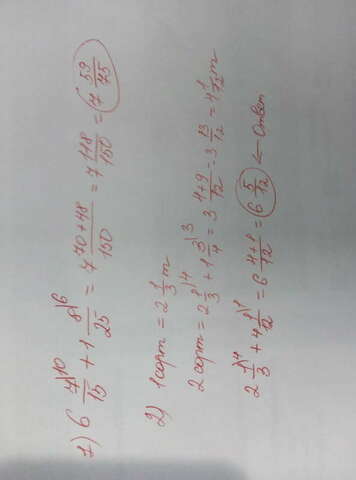 1) 6 7/15 \10 + 1 8/25 \6 = 7 70+48/150 = 7 118/150 = 7 59/75
2) 1 сорт = 2 1/3 т
2 сорт = 2 1/3 \4 + 1 3/4 \3 = 3 4+9/12 = 3 13/12 = 4 1/12 т
2 1/3 \4 + 4 1/12 \1 = 6 4+1/12 = 6 5/12 ← Ответ